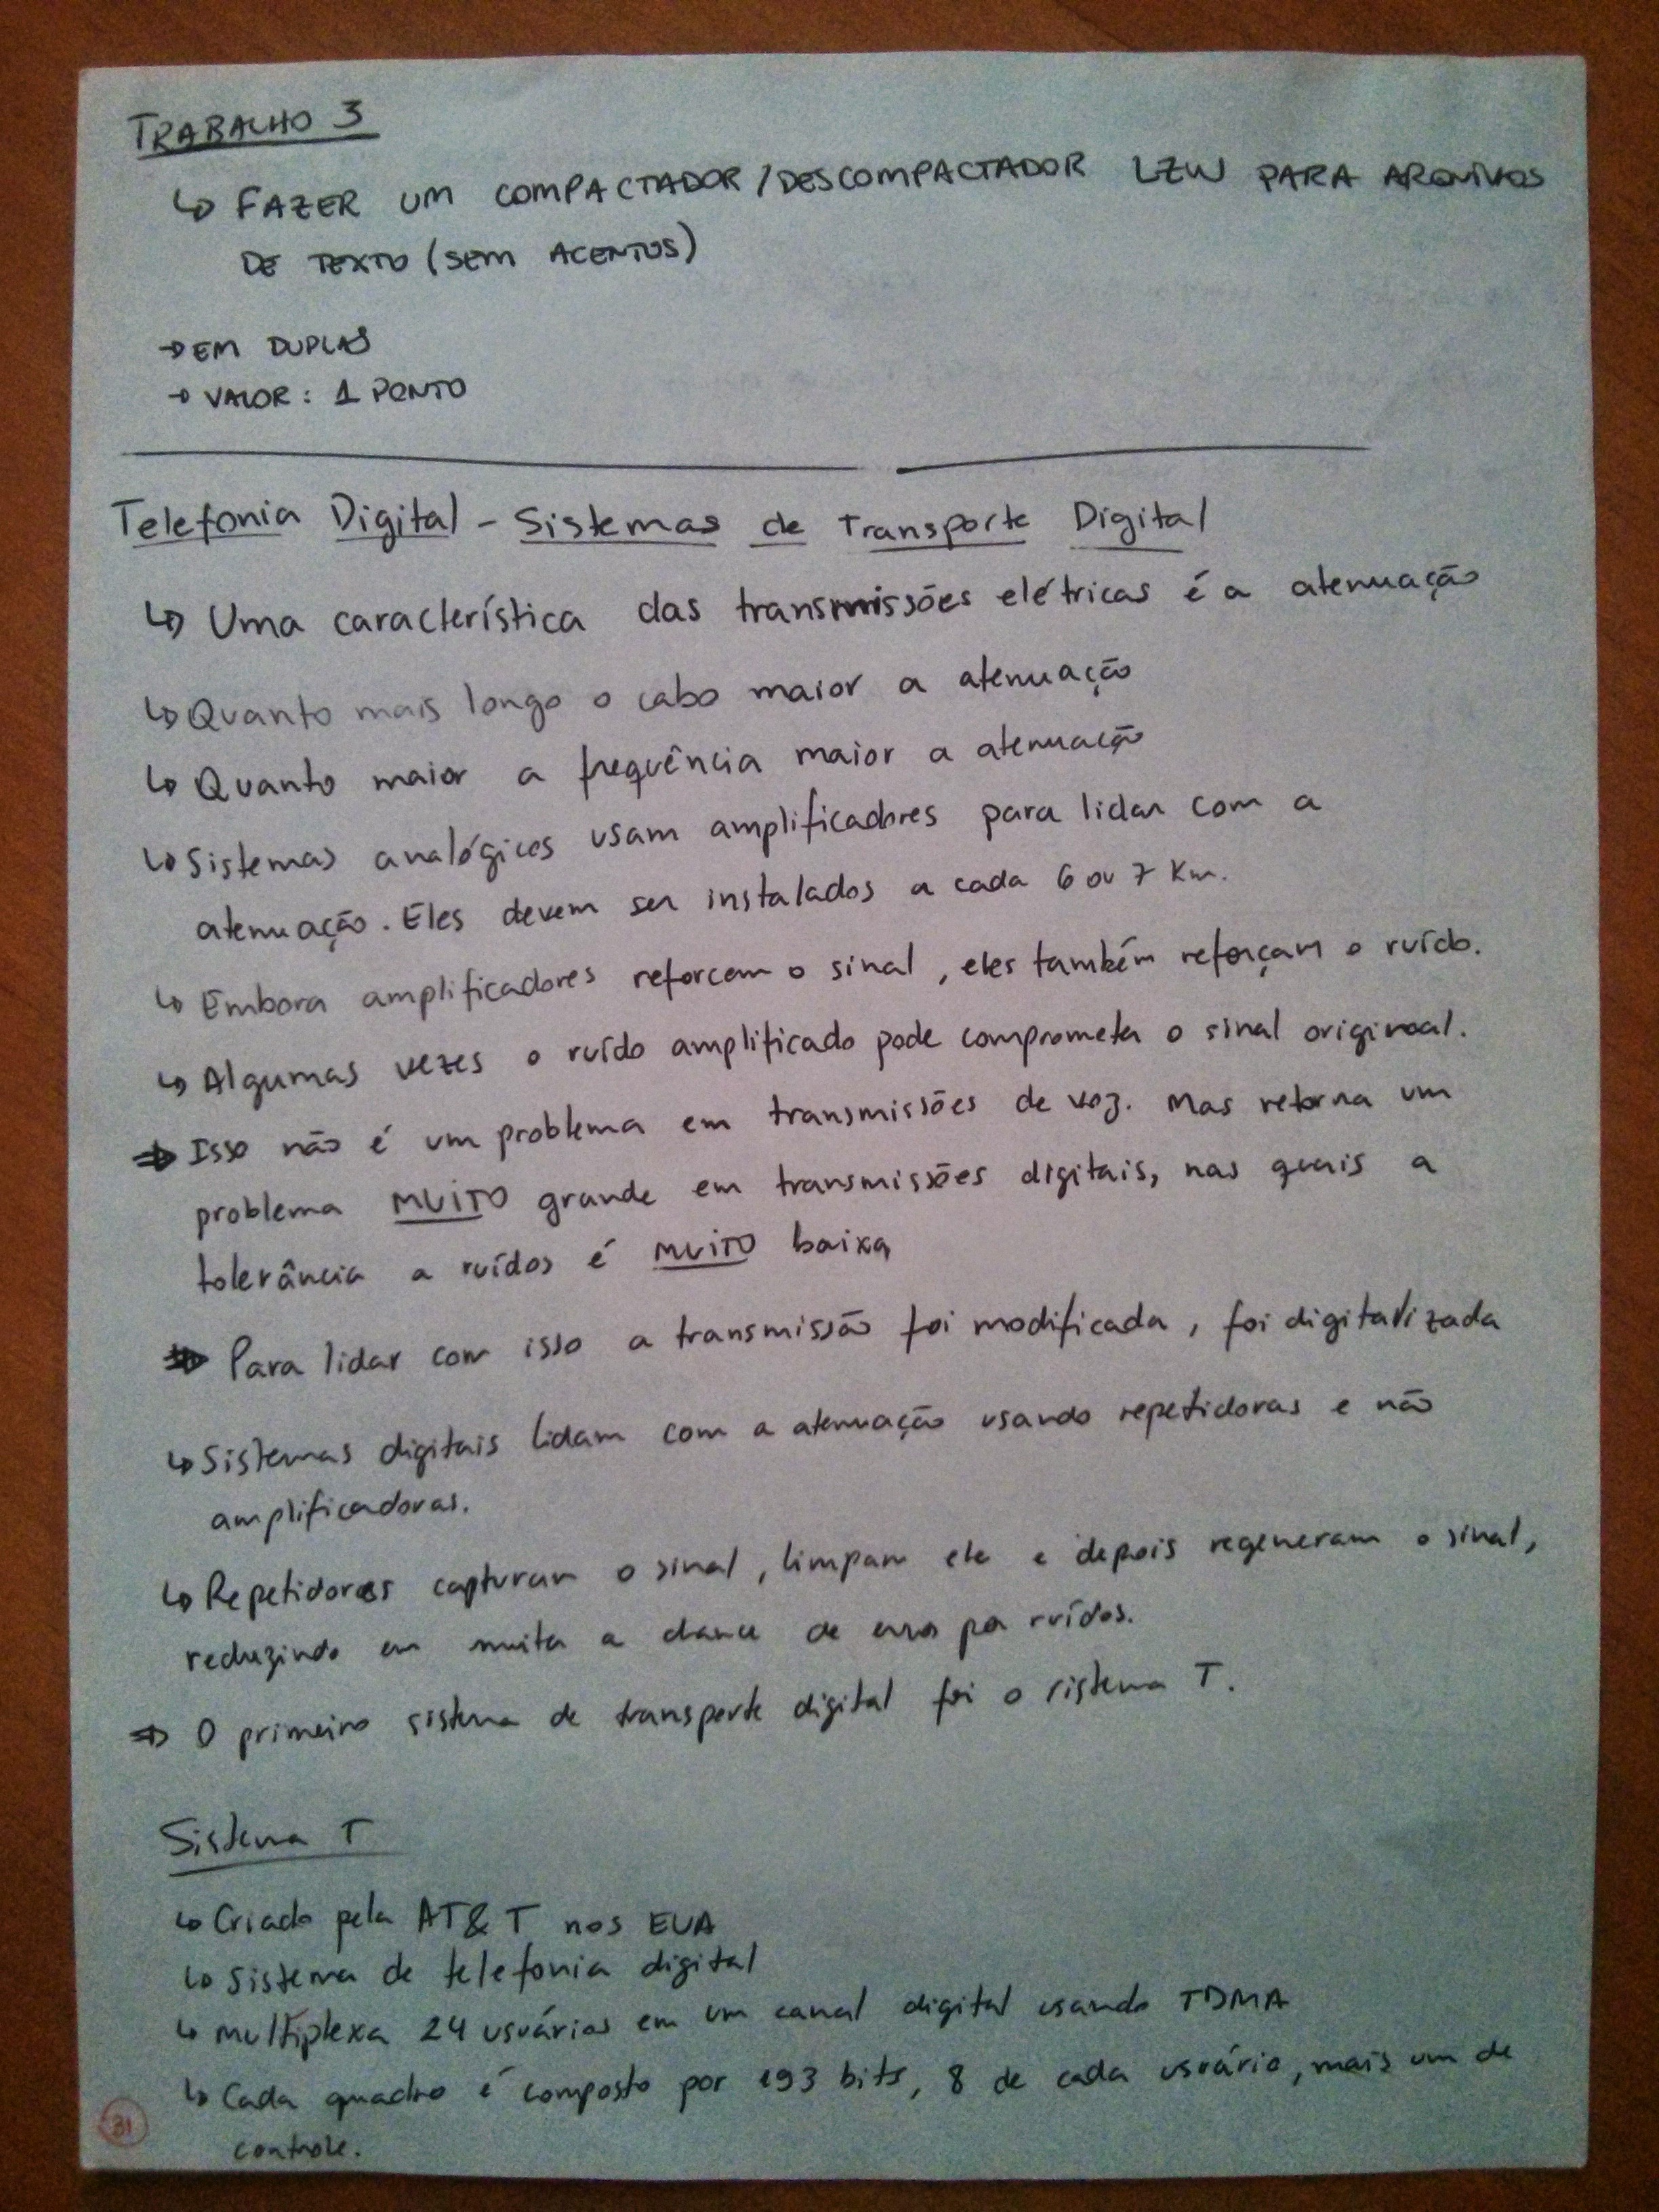 TRABALHO 3
↳ FAZER UM COMPACTADOR/DESCOMPACTADOR LZW PARA ARQUIVOS
DE TEXTO (SEM ACENTOS)
→ EM DUPLAS
→ VALOR: 1 PONTO
Telefonia Digital - Sistemas de Transporte Digital
↳ Uma característica das transmissões elétricas é a atenuação
↳ Quanto mais longo o cabo maior a atenuação
↳ Quanto maior a frequência maior a atenuação
↳ Sistemas analógicos usam amplificadores para lidar com a
atenuação. Eles devem ser instalados a cada 6 ou 7 Km.
↳ Embora amplificadores reforcem o sinal, eles também reforçam o ruído.
↳ Algumas vezes o ruído amplificado pode comprometer o sinal original.
⇒ Isso não é um problema em transmissões de voz. Mas retorna um
problema MUITO grande em transmissões digitais, nas quais a
tolerância a ruídos é MUITO baixa
⇒ Para lidar com isso a transmissão foi modificada, foi digitalizada
↳ Sistemas digitais lidam com a atenuação usando repetidoras e não
amplificadoras.
↳ Repetidores capturam o sinal, limpam ele e depois regeneram o sinal,
reduzindo em muito a chance de erros por ruídos.
⇒ O primeiro sistema de transporte digital foi o sistema T.
Sistema T
↳ Criado pela AT&T nos EUA
↳ Sistema de telefonia digital
↳ Multiplexa 24 usuários em um canal digital usando TDMA
↳ Cada quadro é composto por 193 bits, 8 de cada usuário, mais um de
controle.
31